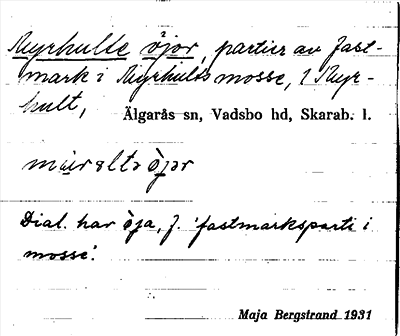 Myrhulte öjor, partier av fast-
mark i Myrhults mosse, 1 Myr-
hult,
Älgarås sn, Vadsbo hd, Skarab. l.
Dial. har öja, f. 'fastmarksparti i
mosse'.
Maja Bergstrand 1931